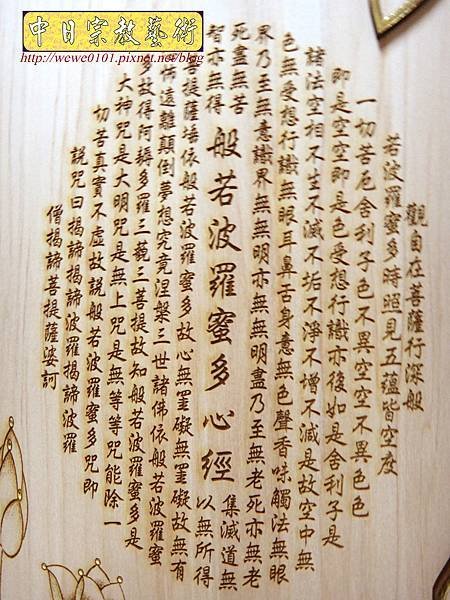 中日宗教藝術
http://wewe0101.pixnet.net/blog
觀自在菩薩行深般
若波羅蜜多時照見五蘊皆空度
一切苦厄舍利子色不異空空不異色色
即是空空即是色受想行識亦復如是舍利子是
諸法空相不生不滅不垢不淨不增不減是故空中無
色無受想行識無眼耳鼻舌身意無色聲香味觸法無眼
界乃至無意識界無無明亦無無明盡乃至無老死亦無老
死盡無苦
集滅道無
智亦無得
以無所得
般若波羅蜜多心經
菩提薩埵依般若波羅蜜多故心無罣礙無罣礙故無有
怖遠離顛倒夢想究竟涅槃三世諸佛依般若波羅蜜
多故得阿耨多羅三藐三菩提故知般若波羅蜜多是
大神咒是大明咒是無上咒是無等等咒能除一
切苦真實不虛故說般若波羅蜜多咒即
說咒曰揭諦揭諦波羅揭諦波羅
僧揭諦菩提薩婆訶